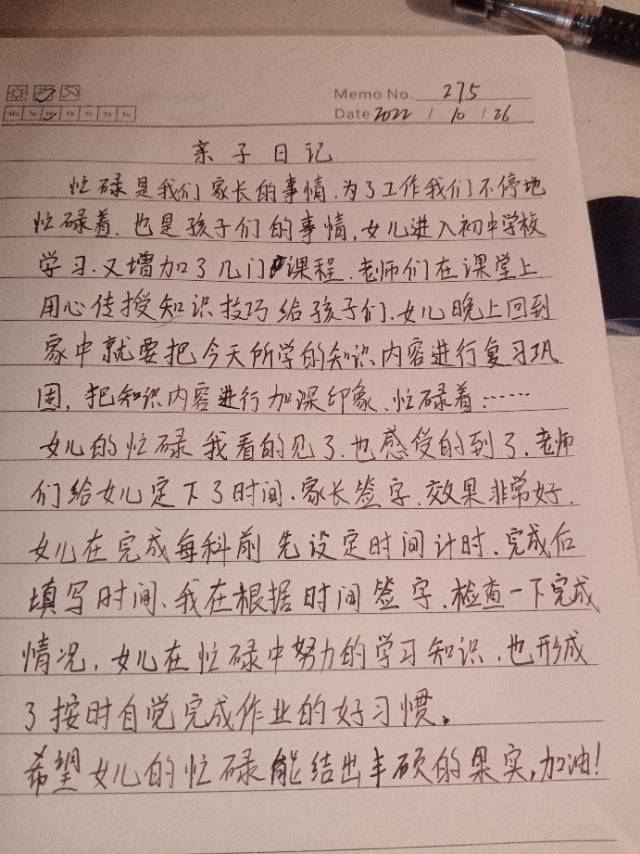 Memo No. 275
Mo Tu We Th Fr Sa Su
Date 2022 / 10 / 26
亲子日记
忙碌是我们家长的事情.为了工作我们不停地
忙碌着.也是孩子们的事情,女儿进入初中学校
学习.又增加了几门课程.老师们在课堂上
用心传授知识技巧给孩子们.女儿晚上回到
家中就要把今天所学的知识内容进行复习巩
固,把知识内容进行加深印象、忙碌着……
女儿的忙碌我看的见了.也感受的到了.老师
们给女儿定下了时间.家长签字.效果非常好.
女儿在完成每科前先设定时间计时.完成后
填写时间、我在根据时间签字.检查一下完成
情况.女儿在忙碌中努力的学习知识.也形成
了按时自觉完成作业的好习惯。
希望女儿的忙碌能结出丰硕的果实,加油!